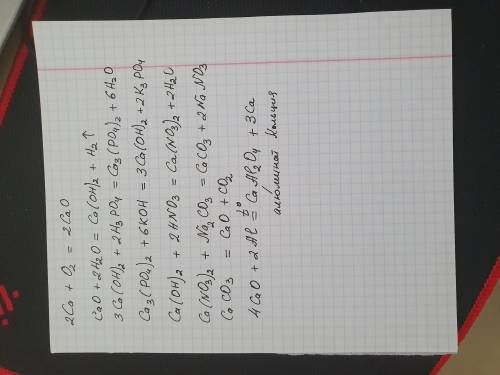 2Ca + O₂ = 2CaO
CaO + 2H₂O = Ca(OH)₂ + H₂↑
3Ca(OH)₂ + 2H₃PO₄ = Ca₃(PO₄)₂ + 6H₂O
Ca₃(PO₄)₂ + 6KOH = 3Ca(OH)₂ + 2K₃PO₄
Ca(OH)₂ + 2HNO₃ = Ca(NO₃)₂ + 2H₂O
Ca(NO₃)₂ + Na₂CO₃ = CaCO₃ + 2NaNO₃
CaCO₃ = CaO + CO₂
4CaO + 2Al =t°= CaAl₂O₄ + 3Ca
алюминат кальция